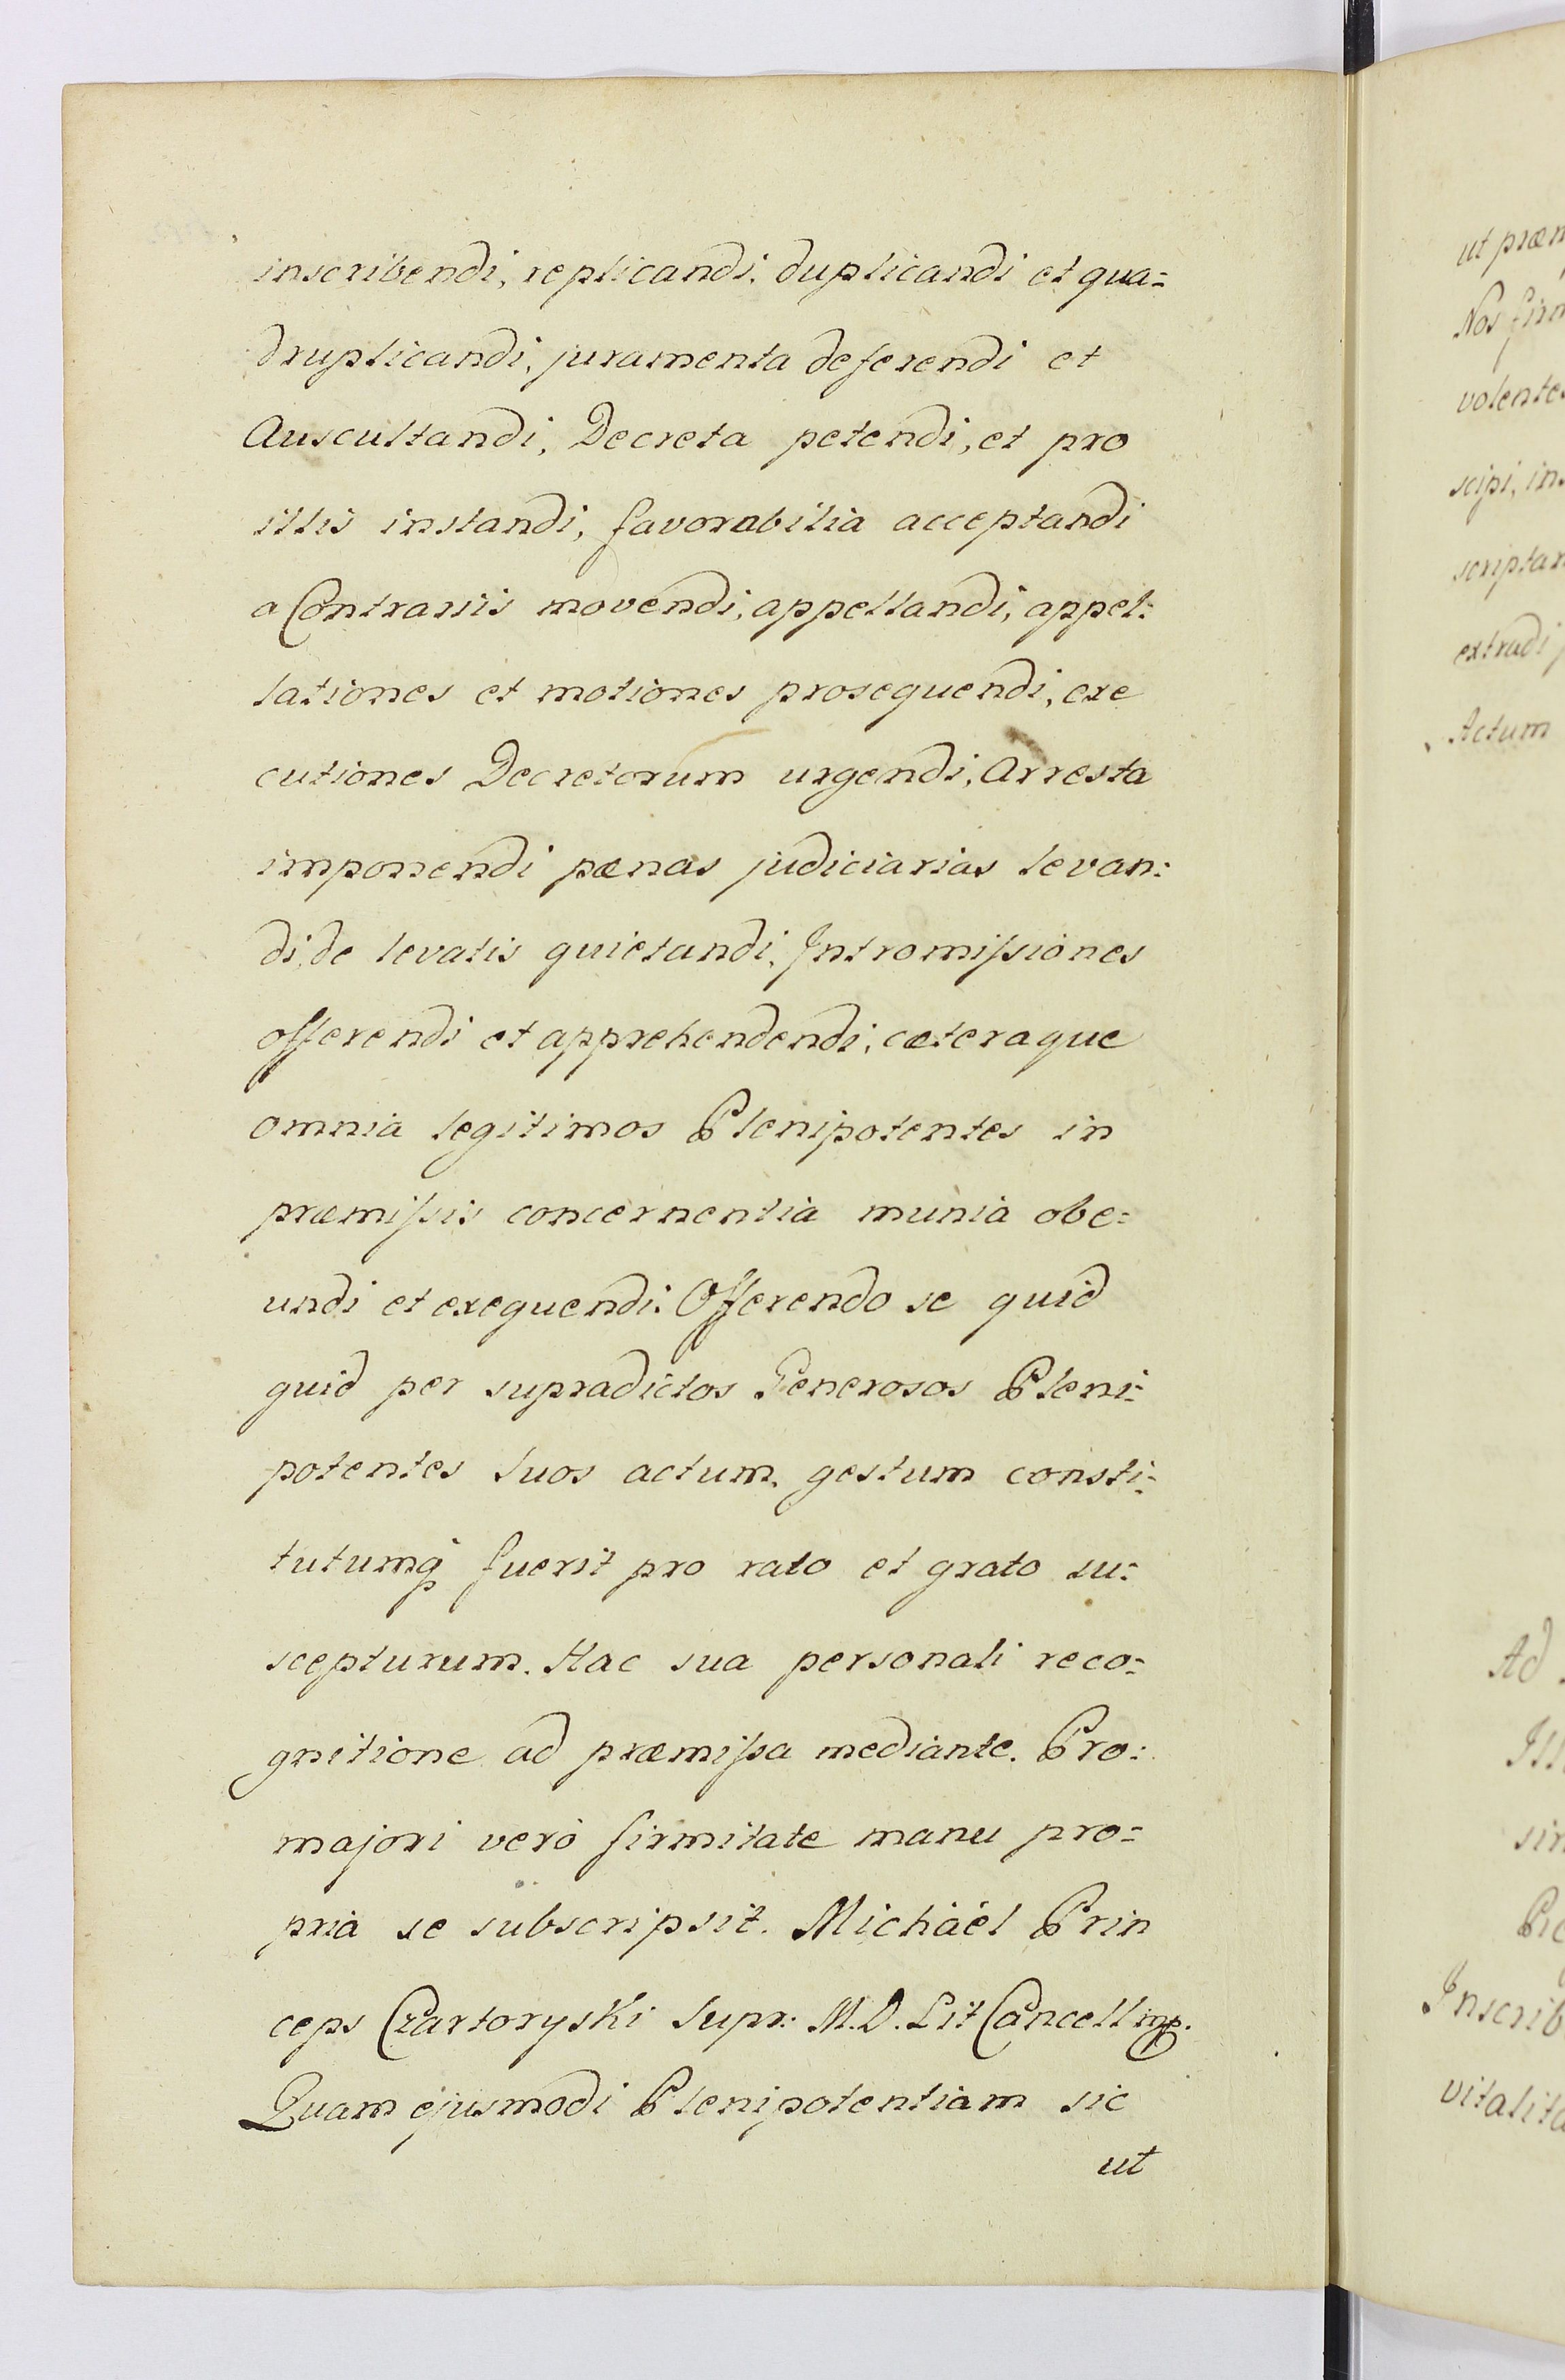 inscribendi, replicandi, duplicandi et qua=
druplicandi, juramenta deferendi et
Auscultandi, Decreta petendi, et pro
illis instandi, favorabilia acceptandi
a Contrariis movendi, appellandi, appel:
lationes et motiones prosequendi, exe
cutiones Decretorum urgendi, Arresta
imponendi pœnas judiciarias levan:
di, de levatis quietandi, Intromiſsiones
offerendi et apprehendendi, cæteraque
omnia legitimos Plenipotentes in
præmiſsis concernentia munia obe=
undi et exequendi. Offerendo se quid
quid per supradictos Generosos Pleni=
potentes suos actum, gestum consti=
tutumq fuerit pro rato et grato su:
scepturum. Hac sua personali reco=
gnitione ad præmiſsa mediante. Pro:
majori verò firmitate manu pro=
pria se subscripsit. Michäel Prin
ceps Czartoryski Supr: M.D. Lit Cancell mp.
Quam ejusmodi Plenipotentiam sic
ut
ut præm
Nos firm
volentes
scipi, in
scriptam
extradi
Actum
Ad
sin
Inscrib
vitalita